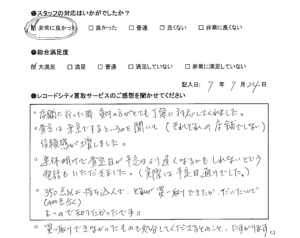 ●スタッフの対応はいかがでしたか？
☑ 非常に良かった □ 良かった □ 普通 □ 良くない □ 非常に良くない
●総合満足度
☑ 大満足 □ 満足 □ 普通 □ 満足していない □ 非常に満足していない
記入日: 7年 7月 24日
●レコードシティ買取サービスのご感想を聞かせてください
・店舗に行った際、受付の方がとても丁寧に対応してくれました。
・査定は東京でするというのを聞いて（それぞれの店舗でしない）
信頼感が増しました。
・連休明けで査定日が予定より遅くなるかもしれないという
説明もいただきました。（実際は予定日通りでした）
・350点以上持ち込んで、どれが買い取りできたか、だいたいで
よいので知りたかったです。
・買い取りできなかったものも処分してくださるとのこと、たすかります。